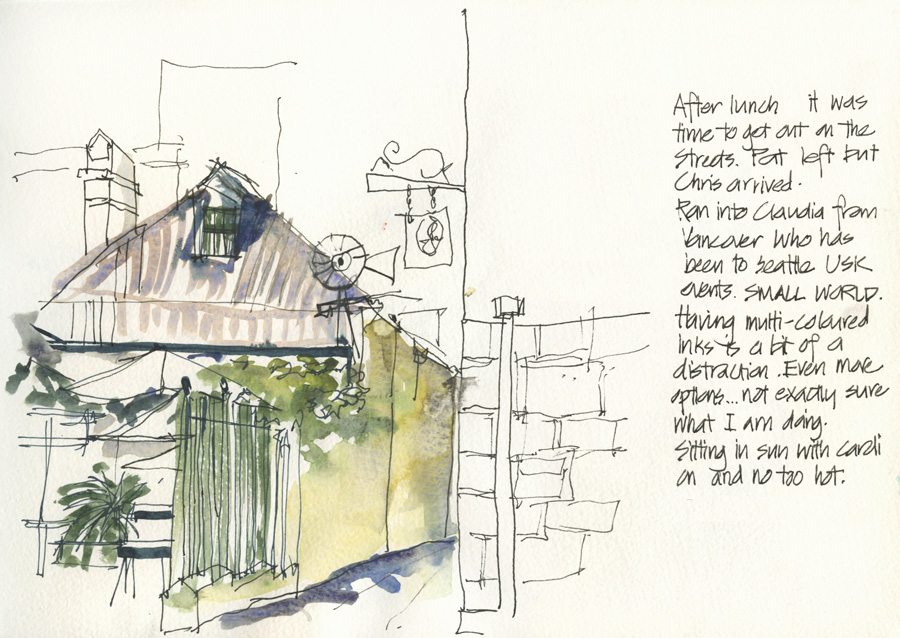 After lunch it was
time to get out on the
streets. Pat left but
Chris arrived.
Ran into Claudia from
Vancover who has
been to Seattle USK
events. SMALL WORLD.
Having multi-coloured
inks is a bit of a
distraction. Even more
options... not exactly sure
what I am doing.
Sitting in sun with cardi
on and no too hot.